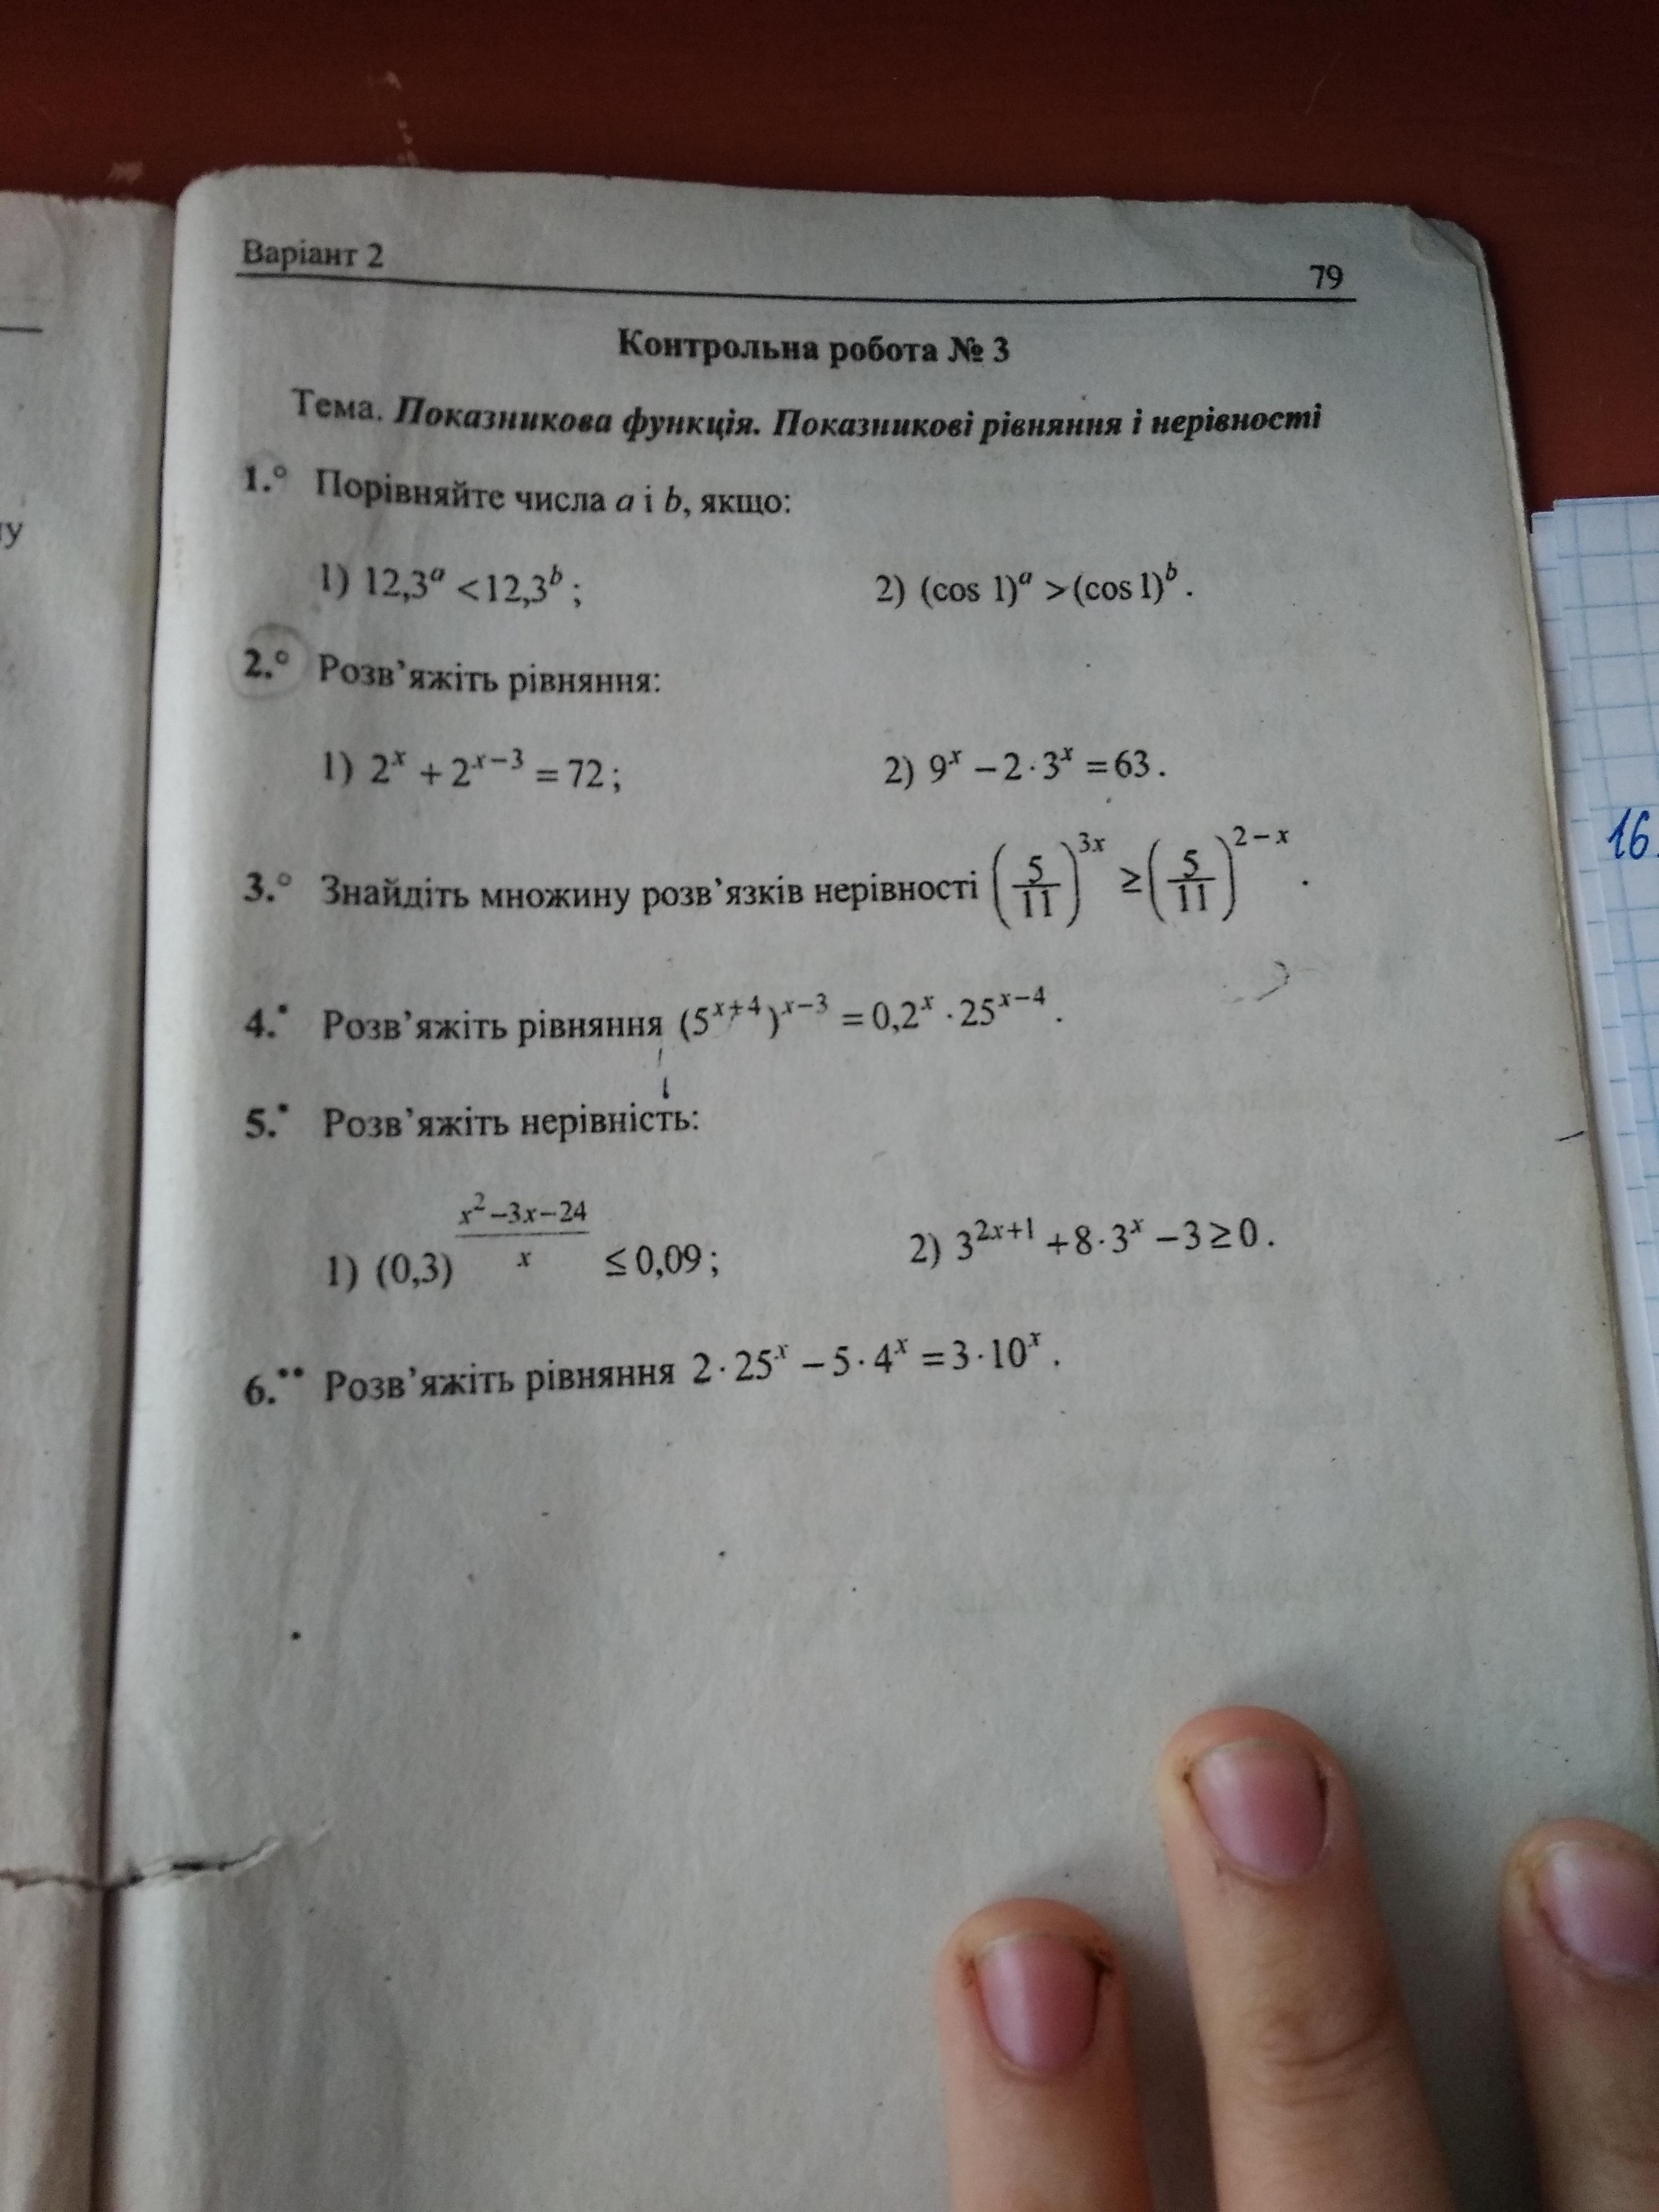 Варіант 2
79
Контрольна робота № 3
Тема. Показникова функція. Показникові рівняння і нерівності
1.° Порівняйте числа a і b, якщо:
1) 12,3^a < 12,3^b ; 2) (cos 1)^a > (cos 1)^b .
2.° Розв'яжіть рівняння:
1) 2^x + 2^{x−3} = 72 ; 2) 9^x − 2 · 3^x = 63 .
3.° Знайдіть множину розв'язків нерівності (5/11)^{3x} ≥ (5/11)^{2−x} .
4.• Розв'яжіть рівняння (5^{x+4})^{x−3} = 0,2^x · 25^{x−4} .
5.• Розв'яжіть нерівність:
1) (0,3)^{(x^2−3x−24)/x} ≤ 0,09 ; 2) 3^{2x+1} + 8 · 3^x − 3 ≥ 0 .
6.•• Розв'яжіть рівняння 2 · 25^x − 5 · 4^x = 3 · 10^x .
16.